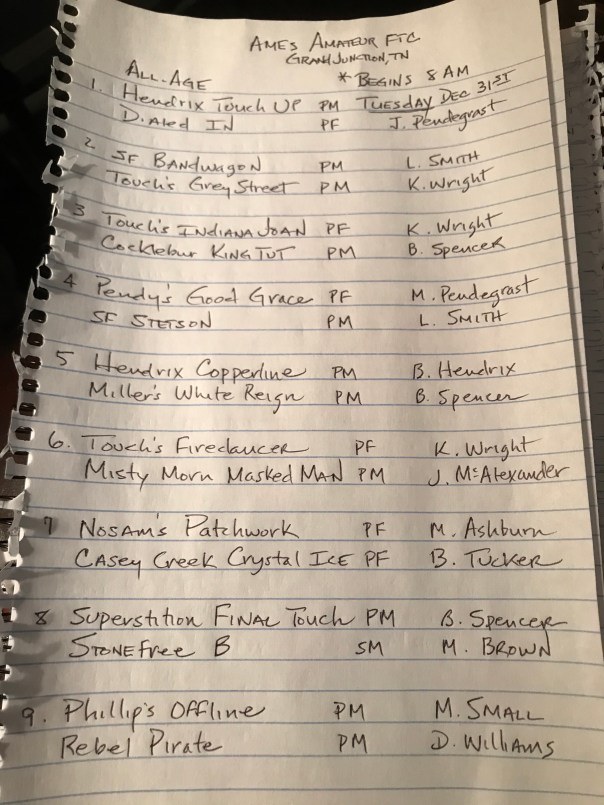 AMES AMATEUR FTC
GRAND JUNCTION, TN
ALL-AGE * BEGINS 8 AM
1. Hendrix Touch UP PM TUESDAY DEC 31ST
D.Aled IN PF J. Pendegrast
2 SF BANDWAGON PM L. SMITH
Touch's Grey Street PM K. Wright
3 Touch's INDIANA JOAN PF K. Wright
Cocklebur KING TUT PM B. SPENCER
4 Pendy's Good Grace PF M. Pendegrast
SF STETSON PM L. SMITH
5 Hendrix Copperline PM B. Hendrix
Miller's White Reign PM B. Spencer
6. Touch's Firedancer PF K. Wright
Misty Morn Masked MAN PM J. McAlexander
7 NOSAM's Patchwork PF M. Ashburn
CASEY Creek Crystal ICE PF B. TUCKER
8 Superstition FINAL Touch PM B. Spencer
STONEFree B SM M. BROWN
9. Phillip's OFFline PM M. SMALL
Rebel Pirate PM D. Williams